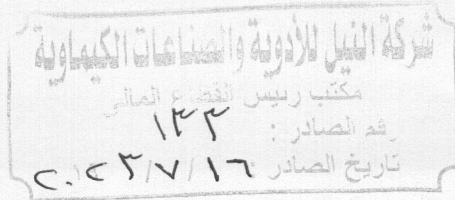 شركة النيل للأدوية والصناعات الكيماوية
مكتب رئيس القطاع المالى
رقم الصادر : ١٣٣
تاريخ الصادر : ١٦ / ٧ / ٢٠٢٣